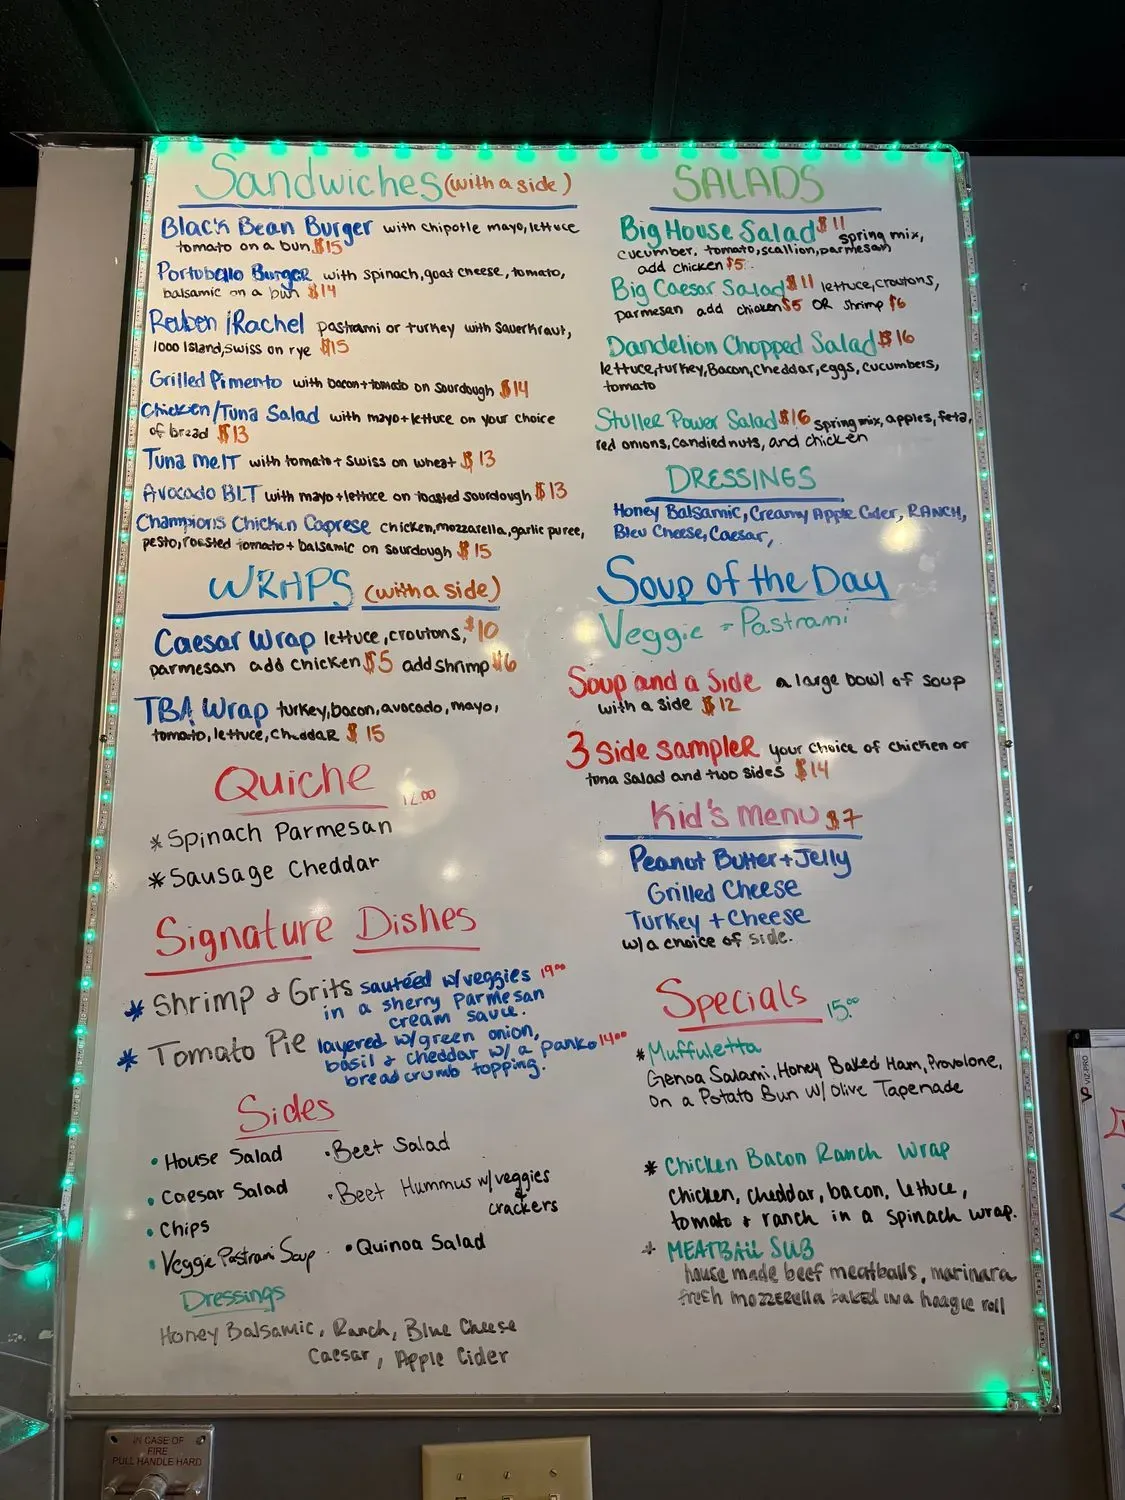 Sandwiches (with a side)
Black Bean Burger with chipotle mayo, lettuce
tomato on a bun $15
Portobello Burger with spinach, goat cheese, tomato,
balsamic on a bun $14
Reuben / Rachel pastrami or turkey with sauerkraut,
1000 Island, swiss on rye $15
Grilled Pimento with bacon + tomato on sourdough $14
Chicken/Tuna Salad with mayo + lettuce on your choice
of bread $13
Tuna Melt with tomato + Swiss on wheat $13
Avocado BLT with mayo + lettuce on toasted sourdough $13
Champions Chicken Caprese chicken, mozzarella, garlic puree,
pesto, roasted tomato + balsamic on sourdough $15
WRAPS (with a side)
Caesar Wrap lettuce, croutons, $10
parmesan add chicken $5 add shrimp $6
TBA Wrap turkey, bacon, avocado, mayo,
tomato, lettuce, cheddar $15
Quiche 12.00
* Spinach Parmesan
* Sausage Cheddar
Signature Dishes
* Shrimp & Grits sautéed w/veggies 19.00
in a sherry Parmesan
cream sauce.
* Tomato Pie layered w/green onion,
basil & cheddar w/ a panko 14.00
bread crumb topping.
Sides
• House Salad
• Caesar Salad
• Chips
• Veggie Pastrami Soup
• Beet Salad
• Beet Hummus w/veggies
& crackers
• Quinoa Salad
Dressings
Honey Balsamic, Ranch, Blue Cheese
Caesar, Apple Cider
SALADS
Big House Salad $11 spring mix,
cucumber, tomato, scallion, parmesan
add chicken $5
Big Caesar Salad $11 lettuce, croutons,
parmesan add chicken $5 OR shrimp $6
Dandelion Chopped Salad $16
lettuce, turkey, Bacon, cheddar, eggs, cucumbers,
tomato
Stuller Power Salad $16 spring mix, apples, feta,
red onions, candied nuts, and chicken
DRESSINGS
Honey Balsamic, Creamy Apple Cider, RANCH,
Bleu Cheese, Caesar,
Soup of the Day
Veggie - Pastrami
Soup and a Side a large bowl of soup
with a side $12
3 Side sampler your choice of chicken or
tuna salad and two sides $14
Kid's Menu $7
Peanut Butter + Jelly
Grilled Cheese
Turkey + Cheese
w/a choice of side.
Specials 15.00
* Muffuletta
Genoa Salami, Honey Baked Ham, Provolone,
on a Potato Bun w/ Olive Tapenade
* Chicken Bacon Ranch Wrap
Chicken, cheddar, bacon, lettuce,
tomato & ranch in a spinach wrap.
* MEATBALL SUB
house made beef meatballs, marinara
fresh mozzerella baked in a hoagie roll
VIZ-PRO
IN CASE OF
FIRE
PULL HANDLE HARD